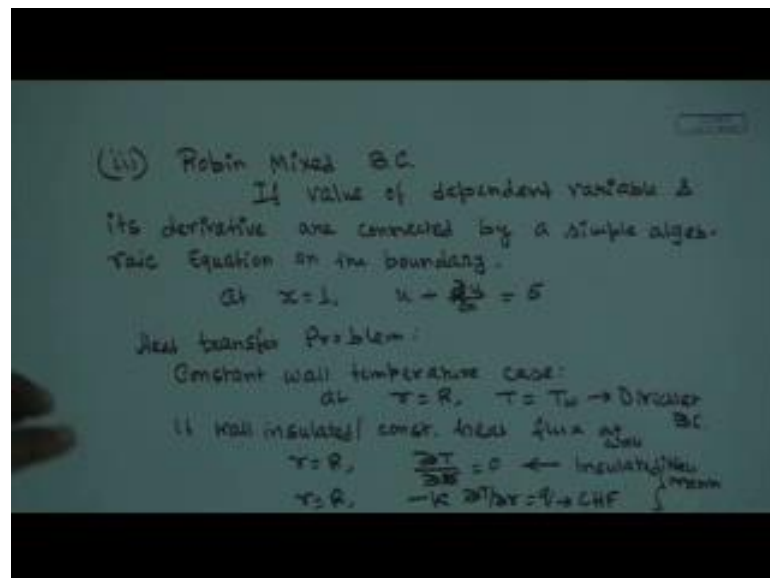 (iii) Robin Mixed B.C.
If value of dependent variable &
its derivative are connected by a simple algeb-
raic Equation on the boundary.
at x=1, u - ∂u/∂x = 5
Heat transfer Problem:
Constant wall temperature case:
at r=R, T = Tw → Dirichlet BC
If wall insulated/ const. heat flux at wall
r=R, = 0 ← Insulated
r=R, -k ∂T/∂r = q → CHF